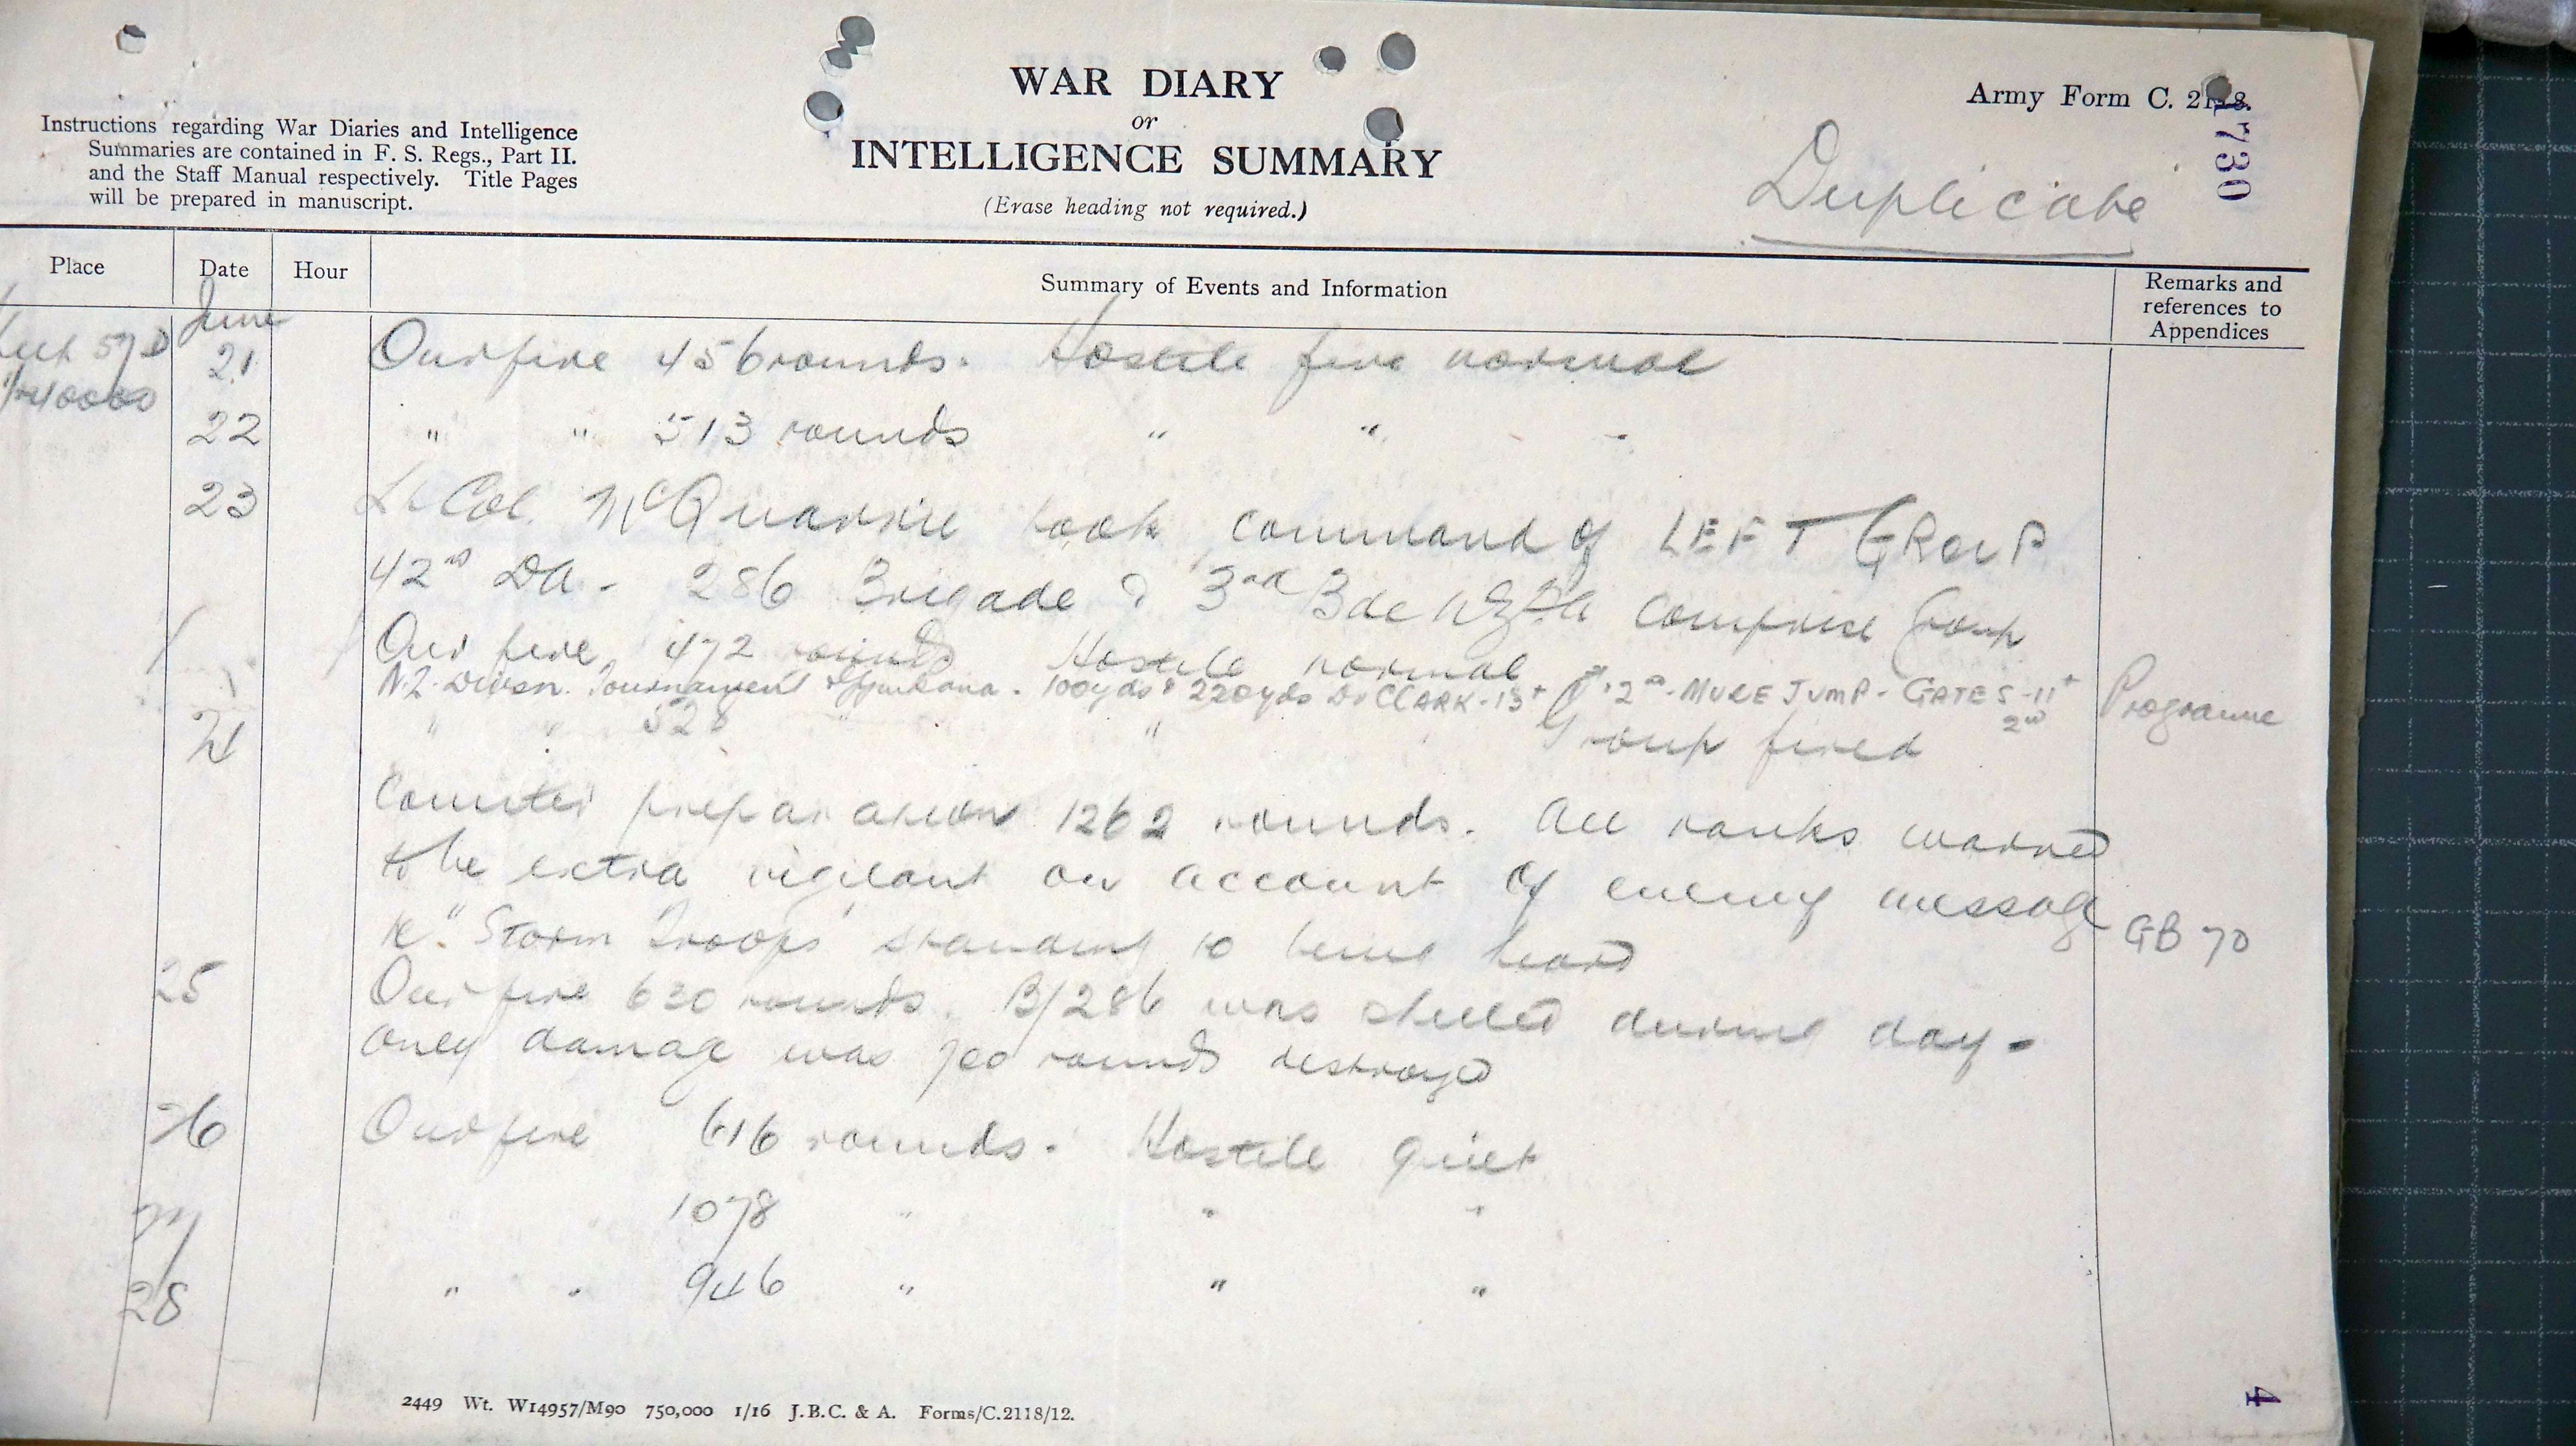 WAR DIARY
or
INTELLIGENCE SUMMARY
(Erase heading not required.)
Instructions regarding War Diaries and Intelligence
Summaries are contained in F. S. Regs., Part II.
and the Staff Manual respectively. Title Pages
will be prepared in manuscript.
Army Form C. 2118.
1730
Duplicate
Place Date Hour Summary of Events and Information Remarks and references to Appendices
June
57D 21 Our fire 456 rounds. Hostile fire normal
1/40000
22 " " 513 rounds " " "
23 Lt Col. McQuarrie took command of LEFT GROUP
42nd DA - 286 Brigade & 3rd Bde NZFA comprise Group
Our fire 472 rounds Hostile normal
N.Z. Divsn. Tournament & Gymkana - 100yds & 220yds Dr CLARK - 13th 2nd - MULE JUMP - GATES - 11th 2nd Programme
24 " " 528 " Group fired
Counter preparation 1262 rounds. All ranks warned
to be extra vigilant on account of enemy message
re "Storm Troops" standing to being heard GB 70
25 Our fire 630 rounds. B/286 was shelled during day -
only damage was 700 rounds destroyed
26 Our fire 616 rounds. Hostile quiet
27 1078 " " "
28 " " 946 " " "
2449 Wt. W14957/M90 750,000 1/16 J.B.C. & A. Forms/C.2118/12.
4